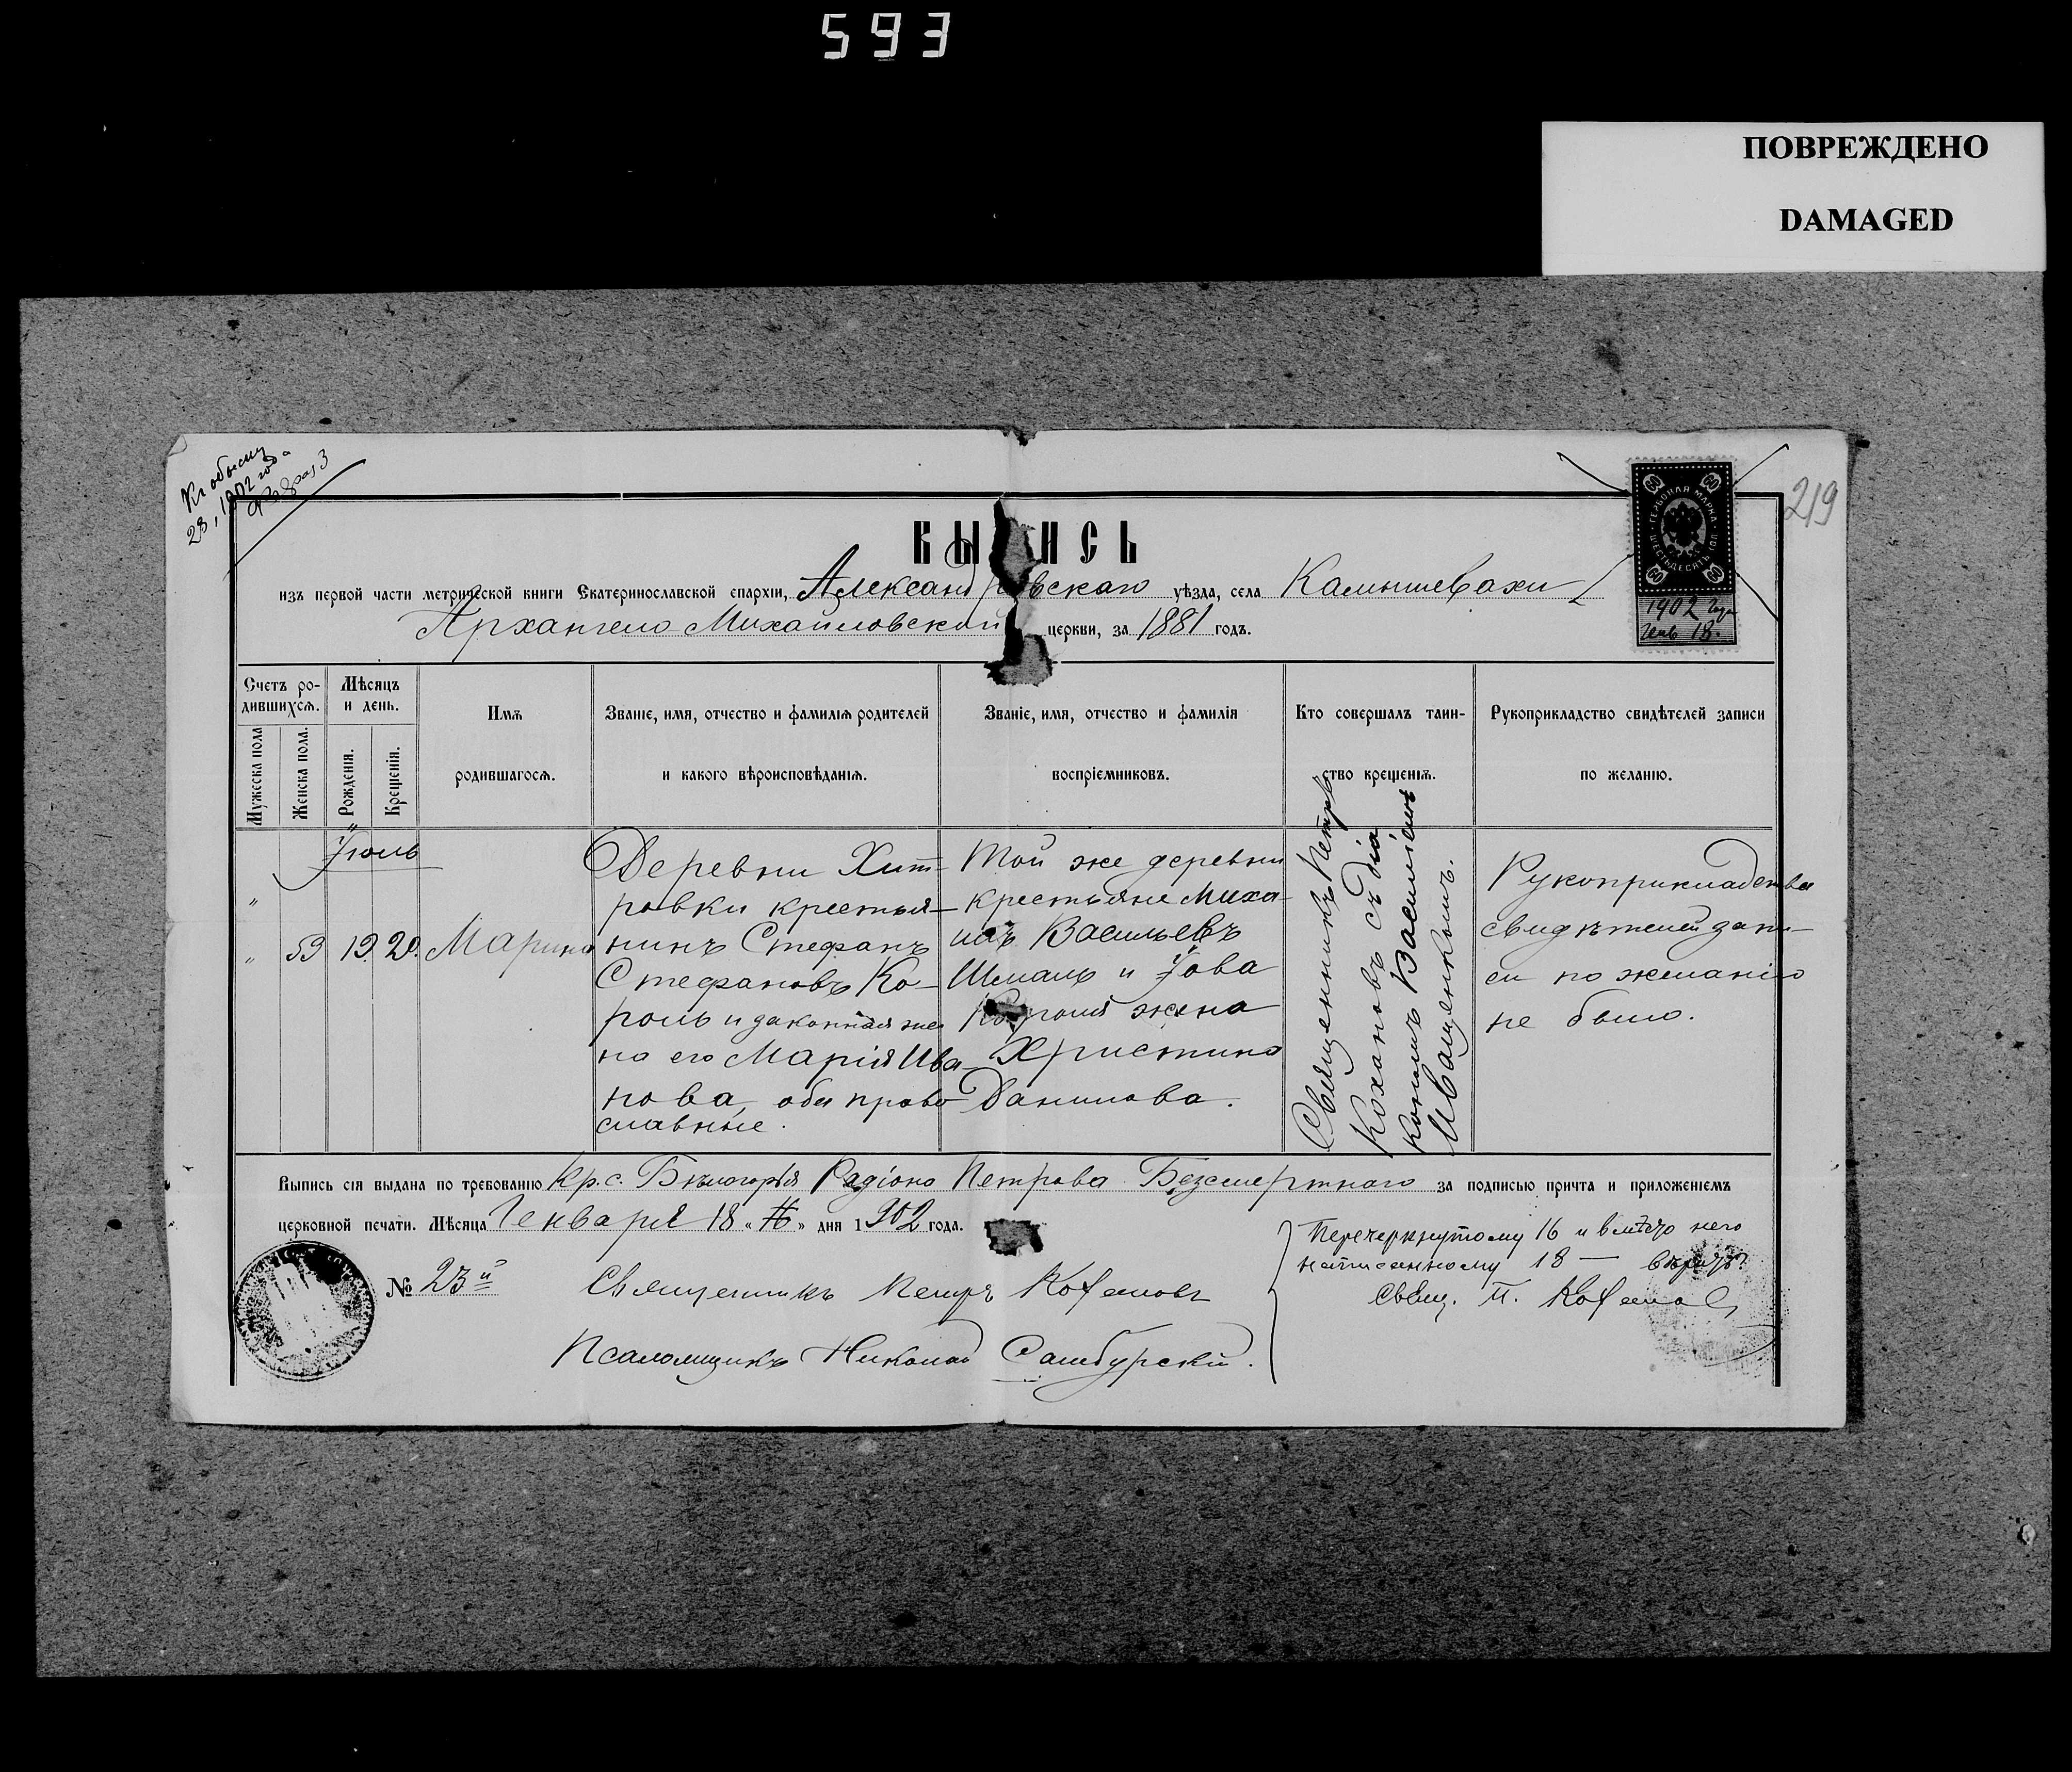 593
ПОВРЕЖДЕНО
DAMAGED
Къ обыску
28, 1902 года
219
ВЫПИСЬ
изъ первой части метрической книги Екатеринославской епархіи, Александровскаго уѣзда, села Камышевахи
Архангело Михайловской церкви, за 1881 годъ.
ГЕРБОВАЯ МАРКА ШЕСТЬДЕСЯТЪ КОП.
60 60 60 60
1902 года
Генв 18.
Счетъ ро-
дившихся.
Мужеска пола
Женска пола.
Мѣсяцъ
и день.
Рожденія.
Крещенія.
Имя
родившагося.
Званіе, имя, отчество и фамилія родителей
и какого вѣроисповѣданія.
Званіе, имя, отчество и фамилія
воспріемниковъ.
Кто совершалъ таин-
ство крещенія.
Рукоприкладство свидѣтелей записи
по желанію.
Іюль
"
" 59 19. 20. Марина
Деревни Хит-
ровки крестья-
нинъ Стефанъ
Стефановъ Ко-
роль и законная же
на его Марія Ива-
нова, оба право
славные.
Той же деревни
крестьяне Миха-
илъ Васильевъ
Шмаль и Іова
Короля жена
Христина
Данилова.
Священникъ Петръ
Кохановъ съ діа
кономъ Василіемъ
Иващенкомъ.
Рукоприкладства
свидѣтелей запи-
си по желанію
не было.
Выпись сія выдана по требованію Кр. с. Бѣлогорья Радіона Петрова Безсмертнаго за подписью причта и приложеніемъ
церковной печати. Мѣсяца Генваря 18 «16» дня 1902 года.
№ 23й
Священникъ Петръ Кохановъ
Псаломщикъ Николай Самбурскій.
Перечеркнутому 16 и вмѣсто него
написанному 18 — вѣрить
Свящ. П. Кохановъ